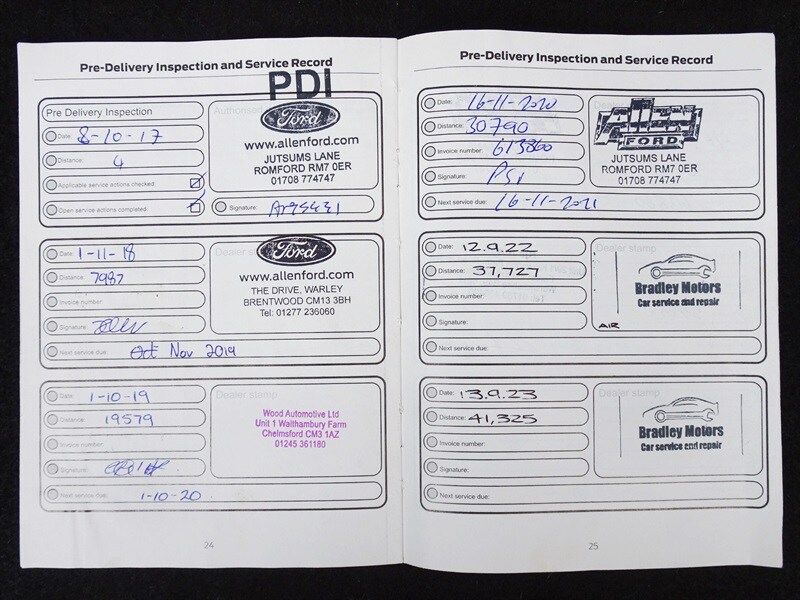 Pre-Delivery Inspection and Service Record
PDI
Pre Delivery Inspection
Date: 8-10-17
Distance: 4
Applicable service actions checked:
Open service actions completed:
Authorised
Ford
www.allenford.com
JUTSUMS LANE
ROMFORD RM7 0ER
01708 774747
Signature:
Date: 1-11-18
Distance: 7987
Invoice number:
Signature:
Next service due: Oct Nov 2019
Dealer stamp
Ford
www.allenford.com
THE DRIVE, WARLEY
BRENTWOOD CM13 3BH
Tel: 01277 236060
Date: 1-10-19
Distance: 19579
Invoice number:
Signature:
Next service due: 1-10-20
Dealer stamp
Wood Automotive Ltd
Unit 1 Walthambury Farm
Chelmsford CM3 1AZ
01245 361180
24
Pre-Delivery Inspection and Service Record
Date: 16-11-2020
Distance: 30790
Invoice number: 613860
Signature:
Next service due: 16-11-2021
Dealer
FORD
JUTSUMS LANE
ROMFORD RM7 0ER
01708 774747
Date: 12.9.22
Distance: 37,727
Invoice number:
Signature:
Next service due:
Dealer stamp
Bradley Motors
Car service and repair
AIR
Date: 13.9.23
Distance: 41,325
Invoice number:
Signature:
Next service due:
Dealer stamp
Bradley Motors
Car service and repair
25